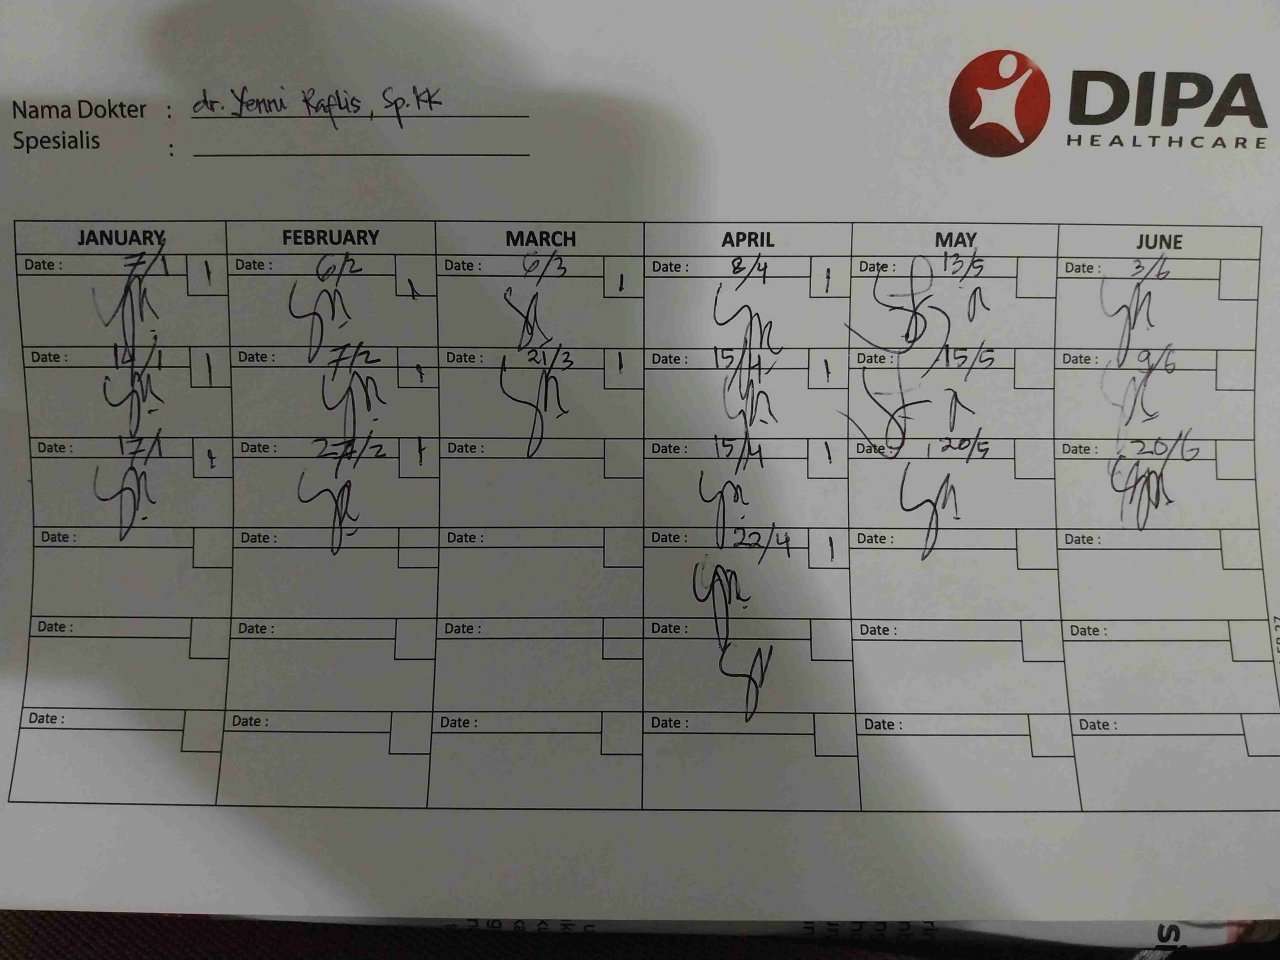 Nama Dokter : dr. Yenni Raflis, Sp.KK
Spesialis :
DIPA
HEALTHCARE
JANUARY FEBRUARY MARCH APRIL MAY JUNE
Date : 7/1 1 Date : 6/2 1 Date : 6/3 1 Date : 8/4 1 Date : 13/5 Date : 3/6
Date : 14/1 1 Date : 7/2 1 Date : 21/3 1 Date : 15/4 1 Date : 15/5 Date : 9/6
Date : 17/1 1 Date : 27/2 1 Date : Date : 15/4 1 Date : 20/5 Date : 20/6
Date : Date : Date : Date : 22/4 1 Date : Date :
Date : Date : Date : Date : Date : Date :
Date : Date : Date : Date : Date : Date :